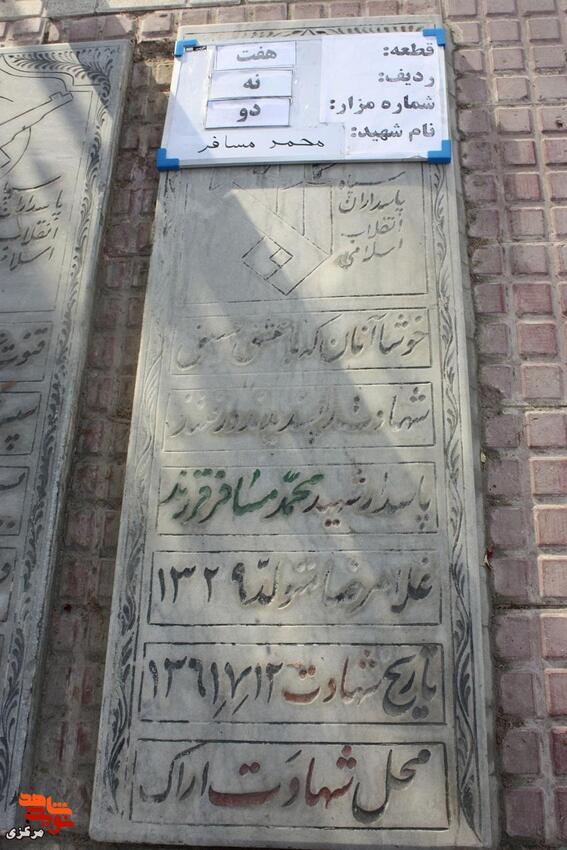 قطعه: هفت
ردیف: نه
شماره مزار: دو
نام شهید: محمد مسافر
سپاه
پاسداران
انقلاب
اسلامی
خوشا آنان که با عشق حسینی
شهادت را پسندیدند و رفتند
پاسدار شهید محمد مسافر فرزند
غلامرضا متولد ۱۳۲۹
تاریخ شهادت ۱۳۶۱/۷/۱۲
محل شهادت اراک
پاسداران
انقلاب
شاهد
مرکزی